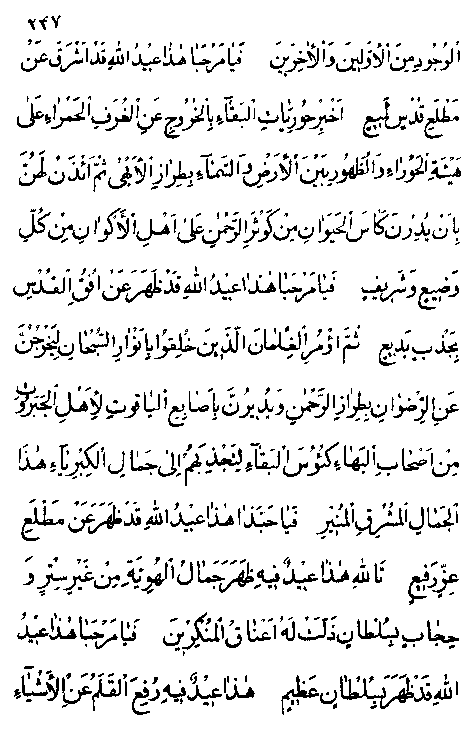 ٢٤٧
الْوُجُودِ مِنَ الْأَوَّلِينَ وَالْأٰخِرِينَ فَيَا مَرْحَبًا هٰذَا عِيدُ اللهِ قَدْ أَشْرَقَ عَنْ
مَطْلَعِ قُدْسٍ لَمِيعٍ أَخْبِرْ حُورِيَّاتِ الْبَقَآءِ بِالْخُرُوجِ عَنِ الْغُرَفِ الْحَمْرَاءِ عَلٰى
هَيْئَةِ الْحَوْرَاءِ وَالظُّهُورِ بَيْنَ الْأَرْضِ وَالسَّمَآءِ بِطِرَازِ الْأَبْهٰى ثُمَّ ائْذَنْ لَهُنَّ
بِأَنْ يُدِرْنَ كَأْسَ الْحَيَوَانِ مِنْ كَوْثَرِ الرَّحْمٰنِ عَلٰى أَهْلِ الْأَكْوَانِ مِنْ كُلِّ
وَضِيعٍ وَشَرِيفٍ فَيَا مَرْحَبًا هٰذَا عِيدُ اللهِ قَدْ ظَهَرَ عَنْ أُفُقِ الْقُدْسِ
بِجَذْبٍ بَدِيعٍ ثُمَّ اؤْمُرِ الْغِلْمَانَ الَّذِينَ خُلِقُوا بِأَنْوَارِ السُّبْحَانِ لِيَخْرُجُنَّ
عَنِ الرِّضْوَانِ بِطِرَازِ الرَّحْمٰنِ وَيُدِيرُنَّ بِأَصَابِعِ الْيَاقُوتِ لِأَهْلِ الْجَبَرُوتِ
مِنْ أَصْحَابِ الْبَهَاءِ كُئُوسَ الْبَقَآءِ لِتَجْذِبَهُمْ إِلٰى جَمَالِ الْكِبْرِيَآءِ هٰذَا
الْجَمَالِ الْمُشْرِقِ الْمُنِيرِ فَيَا حَبَّذَا هٰذَا عِيدُ اللهِ قَدْ ظَهَرَ عَنْ مَطْلَعِ
عِزٍّ رَفِيعٍ تَاللهِ هٰذَا عِيدٌ فِيهِ ظَهَرَ جَمَالُ الْهُوِيَّةِ مِنْ غَيْرِ سِتْرٍ وَ
حِجَابٍ بِسُلْطَانٍ ذَلَّتْ لَهُ أَعْنَاقُ الْمُنْكِرِينَ فَيَا مَرْحَبًا هٰذَا عِيدُ
اللهِ قَدْ ظَهَرَ بِسُلْطَانٍ عَظِيمٍ هٰذَا عِيدٌ فِيهِ رُفِعَ الْقَلَمُ عَنِ الْأَشْيَآءِ